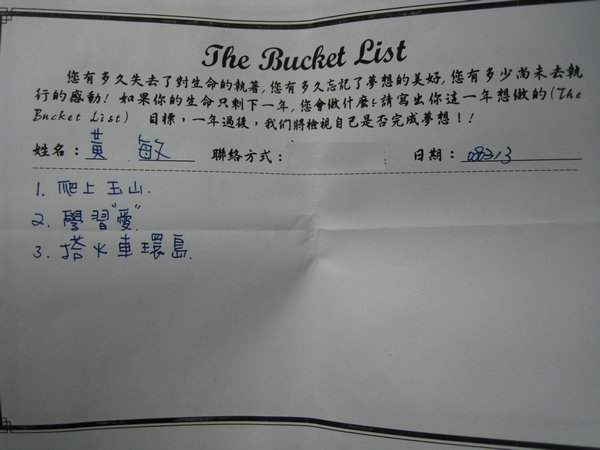 The Bucket List
您有多久失去了對生命的執著,您有多久忘記了夢想的美好,您有多少尚未去執
行的感動! 如果你的生命只剩下一年,您會做什麼?請寫出你這一年想做的(The
Bucket List) 目標,一年過後,我們將檢視自己是否完成夢想!!
姓名: 黃 敏 聯絡方式: 日期:
1. 爬上玉山.
2. 學習"愛".
3. 搭火車環島.